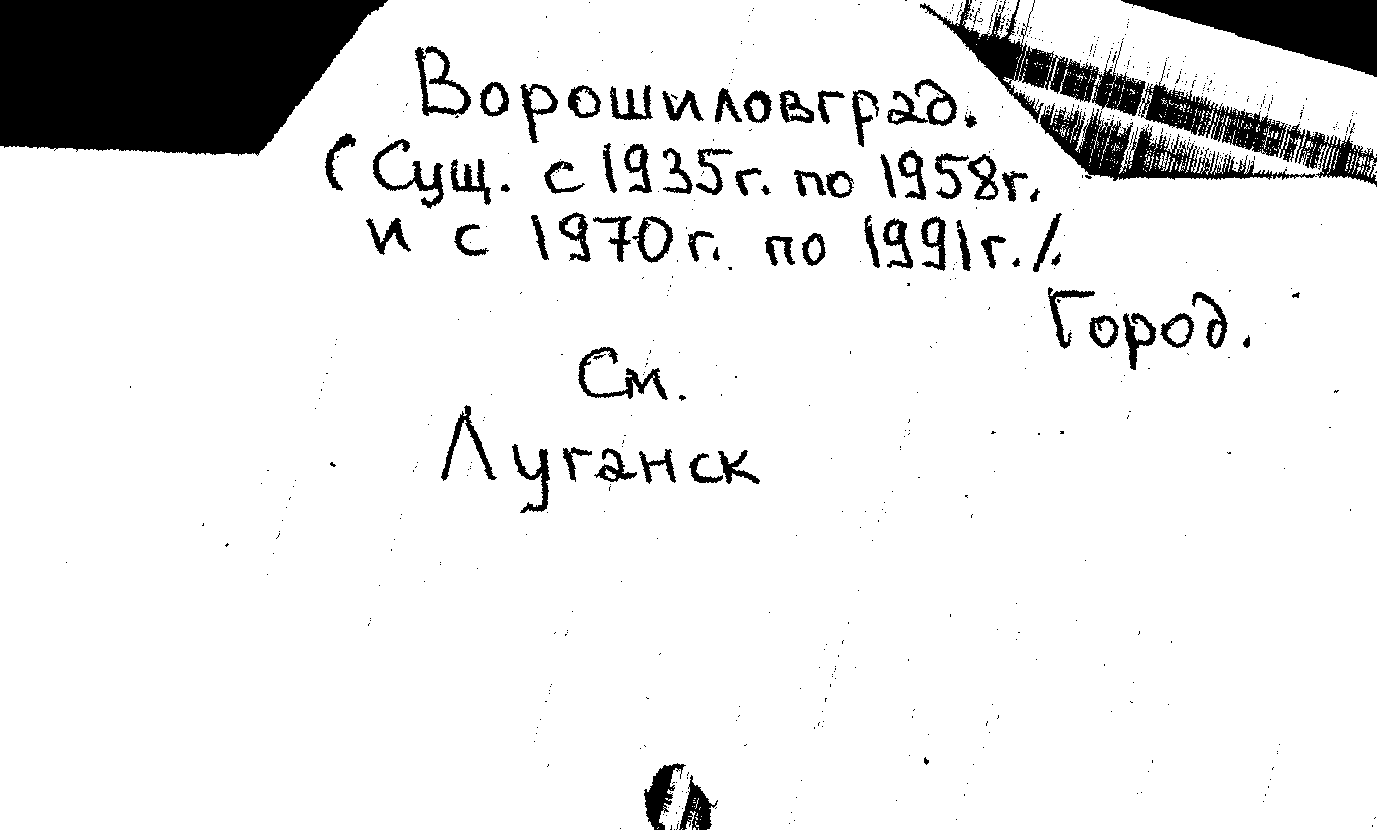 Ворошиловград.
(Сущ. с 1935г. по 1958г.
и с 1970г. по 1991г./.
Город.
См.
Луганск